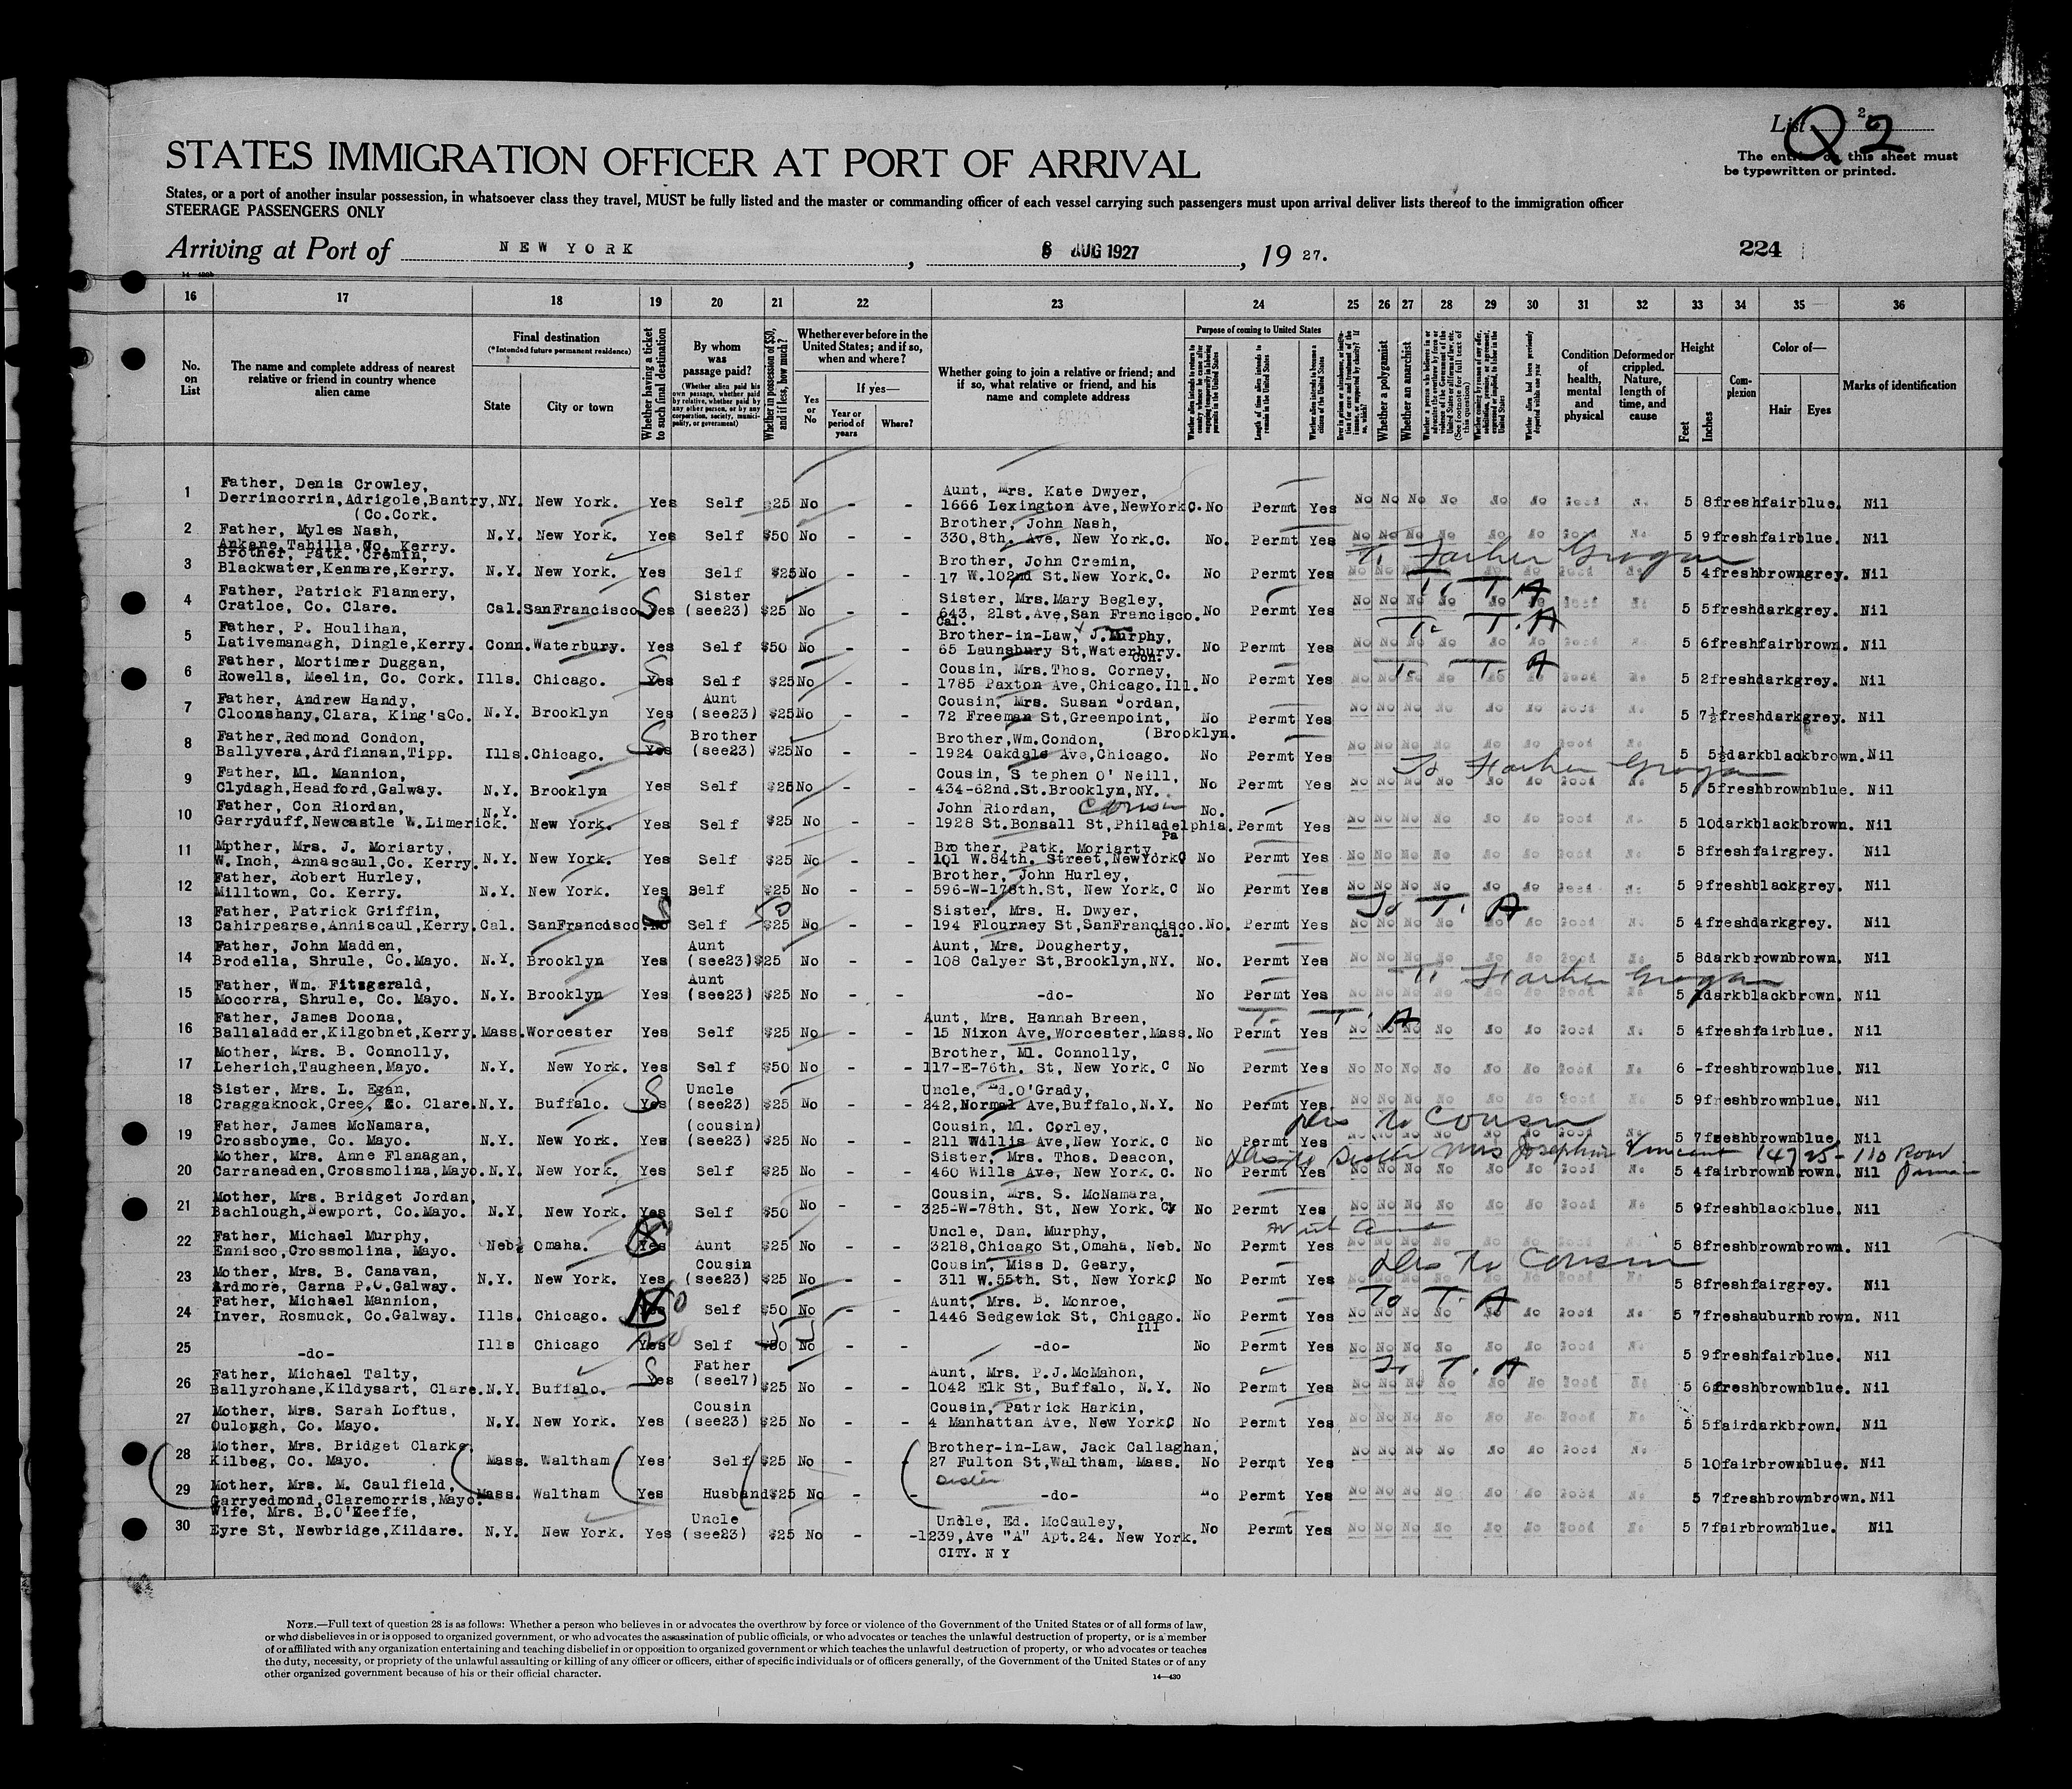 List 2
Q2
The entries on this sheet must
be typewritten or printed.
STATES IMMIGRATION OFFICER AT PORT OF ARRIVAL
States, or a port of another insular possession, in whatsoever class they travel, MUST be fully listed and the master or commanding officer of each vessel carrying such passengers must upon arrival deliver lists thereof to the immigration officer
STEERAGE PASSENGERS ONLY
Arriving at Port of NEW YORK, 8 AUG 1927, 19 27.
224
16 17 18 19 20 21 22 23 24 25 26 27 28 29 30 31 32 33 34 35 36
No. on List
The name and complete address of nearest relative or friend in country whence alien came
Final destination
(*Intended future permanent residence)
State
City or town
Whether having a ticket to such final destination
By whom was passage paid?
(Whether alien paid his own passage, whether paid by relative, whether paid by any other person, or by any corporation, society, municipality, or government)
Whether in possession of $50, and if less, how much?
Whether ever before in the United States; and if so, when and where?
Yes or No
If yes—
Year or period of years
Where?
Whether going to join a relative or friend; and if so, what relative or friend, and his name and complete address
Purpose of coming to United States
Length of time alien intends to remain in the United States
Whether alien intends to become a citizen of the United States
Whether a polygamist
Whether an anarchist
Condition of health, mental and physical
Deformed or crippled. Nature, length of time, and cause
Height
Feet
Inches
Complexion
Color of—
Hair
Eyes
Marks of identification
1 Father, Denis Crowley,
Derrincorrin,Adrigole,Bantry, (Co.Cork. NY. New York. Yes Self $25 No - - Aunt, Mrs. Kate Dwyer,
1666 Lexington Ave,NewYorkC. No Permt Yes No No No No No No Good No 5 8 fresh fair blue. Nil
2 Father, Myles Nash,
Ankane,Tahilla,Co. Kerry. N.Y. New York. Yes Self $50 No - - Brother, John Nash,
330,8th. Ave, New York.C. No. Permt Yes No No No No No No Good No 5 9 fresh fair blue. Nil
3 Brother, Patk. Cremin,
Blackwater,Kenmare,Kerry. N.Y. New York. Yes Self $25 No - - Brother, John Cremin,
17 W.102nd St.New York.C. No Permt Yes To Father Grogan No No No No No No Good No 5 4 fresh brown grey. Nil
4 Father, Patrick Flannery,
Cratloe, Co. Clare. Cal. SanFrancisco S Yes Sister (see23) $25 No - - Sister, Mrs.Mary Begley,
643, 21st.Ave,San Francisco. Cal. No Permt Yes T. T. A No No No No No No Good No 5 5 fresh dark grey. Nil
5 Father, P. Houlihan,
Lativemanagh, Dingle,Kerry. Conn. Waterbury. Yes Self $50 No - - Brother-in-Law, J.Murphy,
65 Launsbury St,Waterbury. Con. No Permt Yes T. T. A No No No No No No Good No 5 6 fresh fair brown. Nil
6 Father, Mortimer Duggan,
Rowells, Meelin, Co. Cork. Ills. Chicago. S Yes Self $25 No - - Cousin, Mrs.Thos. Corney,
1785 Paxton Ave,Chicago.Ill. No Permt Yes T. T. A No No No No No No Good No 5 2 fresh dark grey. Nil
7 Father, Andrew Handy,
Cloonshany,Clara, King'sCo. N.Y. Brooklyn Yes Aunt (see23) $25 No - - Cousin, Mrs. Susan Jordan,
72 Freeman St,Greenpoint, (Brooklyn. No Permt Yes No No No No No No Good No 5 7½ fresh dark grey. Nil
8 Father,Redmond Condon,
Ballyvera,Ardfinnan,Tipp. Ills. Chicago. S Yes Brother (see23) $25 No - - Brother,Wm.Condon,
1924 Oakdale Ave,Chicago. No Permt Yes No No No No No No Good No 5 5½ dark black brown. Nil
9 Father, Ml. Mannion,
Clydagh,Headford,Galway. N.Y. Brooklyn Yes Self $25 No - - Cousin, S tephen O' Neill,
434-62nd.St.Brooklyn,NY. No Permt Yes To Father Grogan No No No No No No Good No 5 5 fresh brown blue. Nil
10 Father, Con Riordan,
Garryduff,Newcastle W.Limerick. N.Y. New York. Yes Self $25 No - - John Riordan, Cousin
1928 St.Bonsall St,Philadelphia. Pa No. Permt Yes No No No No No No Good No 5 10 dark black brown. Nil
11 Mother, Mrs. J. Moriarty,
W.Inch, Annascaul,Co. Kerry. N.Y. New York. Yes Self $25 No - - Brother, Patk. Moriarty
101 W.84th. Street,NewYorkC No Permt Yes No No No No No No Good No 5 8 fresh fair grey. Nil
12 Father, Robert Hurley,
Milltown, Co. Kerry. N.Y. New York. Yes Self $25 No - - Brother, John Hurley,
596-W-178th.St, New York.C No Permt Yes No No No No No No Good No 5 9 fresh black grey. Nil
13 Father, Patrick Griffin,
Cahirpearse,Anniscaul,Kerry. Cal. SanFrancisco. S No Self 50 $25 No - - Sister, Mrs. H. Dwyer,
194 Flourney St,SanFrancisco. Cal. No. Permt Yes To T. A No No No No No No Good No 5 4 fresh dark grey. Nil
14 Father, John Madden,
Brodella, Shrule, Co.Mayo. N.Y. Brooklyn Yes Aunt (see23) $25 No - - Aunt, Mrs. Dougherty,
108 Calyer St,Brooklyn,NY. No. Permt Yes No No No No No No Good No 5 8 dark brown brown. Nil
15 Father, Wm. Fitzgerald,
Mocorra, Shrule, Co. Mayo. N.Y. Brooklyn Yes Aunt (see23) $25 No - - -do- No Permt Yes To Father Grogan No No No No No No Good No 5 dark black brown. Nil
16 Father, James Doona,
Ballaladder,Kilgobnet,Kerry. Mass. Worcester Yes Self $25 No - - Aunt, Mrs. Hannah Breen,
15 Nixon Ave,Worcester,Mass. No Permt Yes T. T. A No No No No No No Good No 5 4 fresh fair blue. Nil
17 Mother, Mrs. B. Connolly,
Leherich,Taugheen,Mayo. N.Y. New York. Yes Self $50 No - - Brother, Ml. Connolly,
117-E-76th. St, New York.C No Permt Yes No No No No No No Good No 6 - fresh brown blue. Nil
18 Sister, Mrs. L. Egan,
Craggaknock,Cree, Co. Clare. N.Y. Buffalo. S Yes Uncle (see23) $25 No - - Uncle, Ed.O'Grady,
242,Normal Ave,Buffalo,N.Y. No Permt Yes. No No No No No No Good No 5 9 fresh brown blue. Nil
19 Father, James McNamara,
Crossboyne, Co. Mayo. N.Y. New York. Yes (cousin) (see23) $25 No - - Cousin, Ml. Corley,
211 Willis Ave,New York.C No Permt Yes Dis to Cousin No No No No No No Good No 5 7 fresh brown blue. Nil
20 Mother, Mrs. Anne Flanagan,
Carraneaden,Crossmolina,Mayo. N.Y. New York. Yes Self $25 No - - Sister, Mrs. Thos. Deacon,
460 Wills Ave, New York.C. No Permt Yes Dis to Sister Mrs Josephine Vincent 14725-110 Road No No No No No No Good No 5 4 fair brown brown. Nil
21 Mother, Mrs. Bridget Jordan,
Bachlough,Newport, Co.Mayo. N.Y. New York. Yes Self $50 No - - Cousin, Mrs. S. McNamara,
325-W-78th. St, New York. Cy No Permt Yes No No No No No No Good No 5 9 fresh black blue. Nil
22 Father, Michael Murphy,
Ennisco,Crossmolina, Mayo. Neb. Omaha. Yes Aunt $25 No - - Uncle, Dan. Murphy,
3218,Chicago St,Omaha, Neb. No Permt Yes No No No No No No Good No 5 8 fresh brown brown. Nil
23 Mother, Mrs. B. Canavan,
Ardmore, Carna P.O.Galway. N.Y. New York. Yes Cousin (see23) $25 No - - Cousin, Miss D. Geary,
311 W.55th. St, New York.C No Permt Yes Dis to Cousin No No No No No No Good No 5 8 fresh fair grey. Nil
24 Father, Michael Mannion,
Inver, Rosmuck, Co.Galway. Ills. Chicago. No Self $50 No - - Aunt, Mrs. B. Monroe,
1446 Sedgewick St, Chicago. Ill No Permt Yes To T. A No No No No No No Good No 5 7 fresh auburn brown. Nil
25 -do- Ills Chicago No Yes Self $50 No - - -do- No Permt Yes No No No No No No Good No 5 9 fresh fair blue. Nil
26 Father, Michael Talty,
Ballyrohane,Kildysart, Clare. N.Y. Buffalo. S Yes Father (see17) $25 No - - Aunt, Mrs. P.J.McMahon,
1042 Elk St, Buffalo, N.Y. No Permt Yes To T. A No No No No No No Good No 5 6 fresh brown blue. Nil
27 Mother, Mrs. Sarah Loftus,
Oulough, Co. Mayo. N.Y. New York. Yes Cousin (see23) $25 No - - Cousin, Patrick Harkin,
4 Manhattan Ave, New York.C No Permt Yes No No No No No No Good No 5 5 fair dark brown. Nil
28 Mother, Mrs. Bridget Clarke,
Kilbeg, Co. Mayo. Mass. Waltham Yes Self $25 No - - Brother-in-Law, Jack Callaghan,
27 Fulton St,Waltham, Mass. No Permt Yes No No No No No No Good No 5 10 fair brown blue. Nil
29 Mother, Mrs. M. Caulfield,
Garryedmond,Claremorris,Mayo. Mass. Waltham Yes Husband $25 No - - Sister -do- No Permt Yes No No No No No No Good No 5 7 fresh brown brown. Nil
30 Wife, Mrs. B.O'Keeffe,
Eyre St, Newbridge,Kildare. N.Y. New York. Yes Uncle (see23) $25 No - - Uncle, Ed. McCauley,
1239,Ave "A" Apt.24. New York.
CITY. N Y No Permt Yes No No No No No No Good No 5 7 fair brown blue. Nil
NOTE.—Full text of question 28 is as follows: Whether a person who believes in or advocates the overthrow by force or violence of the Government of the United States or of all forms of law,
or who disbelieves in or is opposed to organized government, or who advocates the assassination of public officials, or who advocates or teaches the unlawful destruction of property, or is a member
of or affiliated with any organization entertaining and teaching disbelief in or opposition to organized government or which teaches the unlawful destruction of property, or who advocates or teaches
the duty, necessity, or propriety of the unlawful assaulting or killing of any officer or officers, either of specific individuals or of officers generally, of the Government of the United States or of any
other organized government because of his or their official character.
14—430